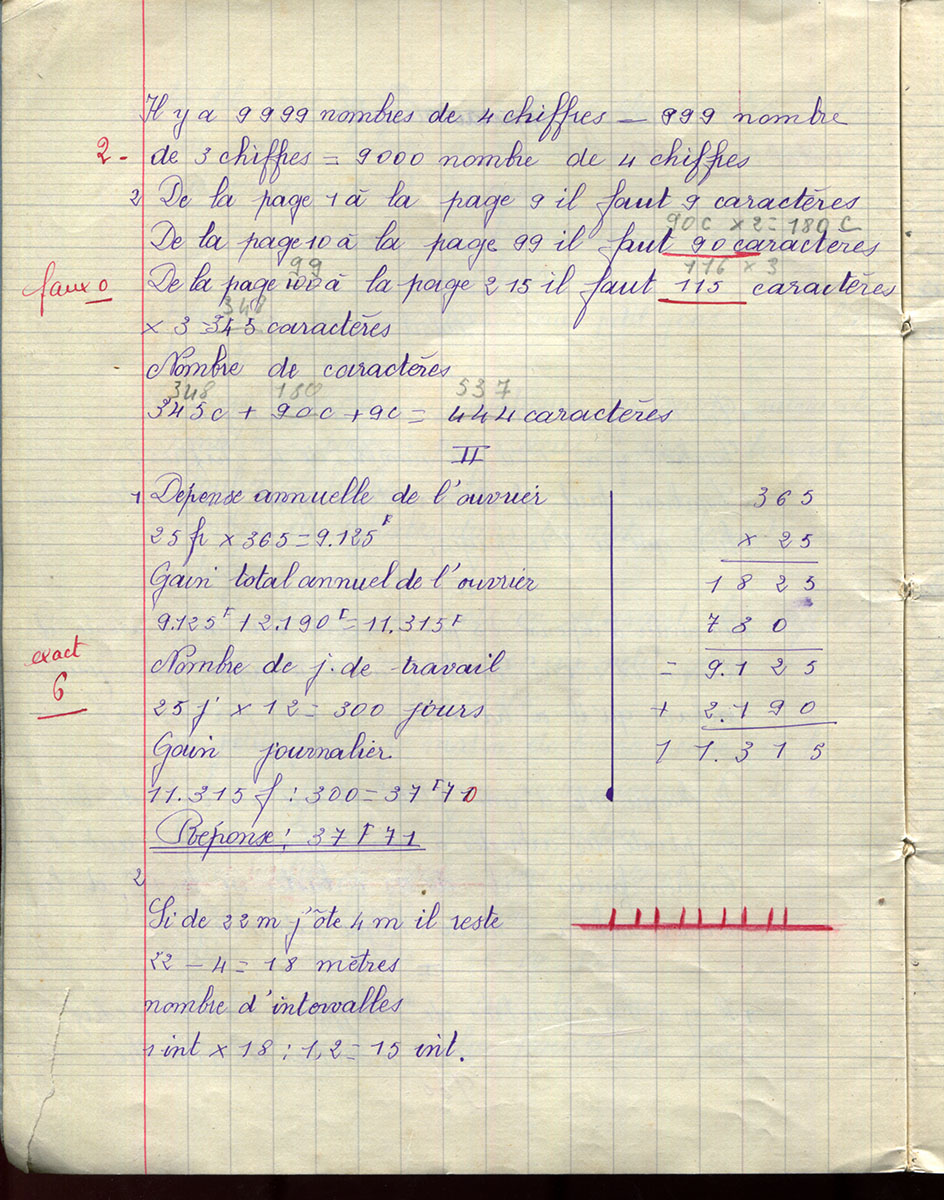 Il y a 9999 nombres de 4 chiffres — 999 nombre
2 - de 3 chiffres = 9000 nombre de 4 chiffres
2 De la page 1 à la page 9 il faut 9 caractères
90c × 2 = 180 C
De la page 10 à la page 99 il faut 90 caractères
99 116 × 3
faux 0 De la page 100 à la page 215 il faut 115 caractères
348
× 3 345 caractères
Nombre de caractères
348 180 537
345c + 90c + 9c = 444 caractères
II
1 Dépense annuelle de l'ouvrier
25 f × 365 = 9.125F
Gain total annuel de l'ouvrier
9.125F + 2.190F = 11.315F
exact
6
Nombre de j. de travail
25 j × 12 = 300 jours
Gain journalier.
11.315 f : 300 = 37F710
Réponse : 37F71
365
× 25
1825
730
= 9.125
+ 2.190
11.315
2
Si de 22 m j'ôte 4 m il reste
22 - 4 = 18 mètres
nombre d'intervalles
1 int × 18 : 1,2 = 15 int.